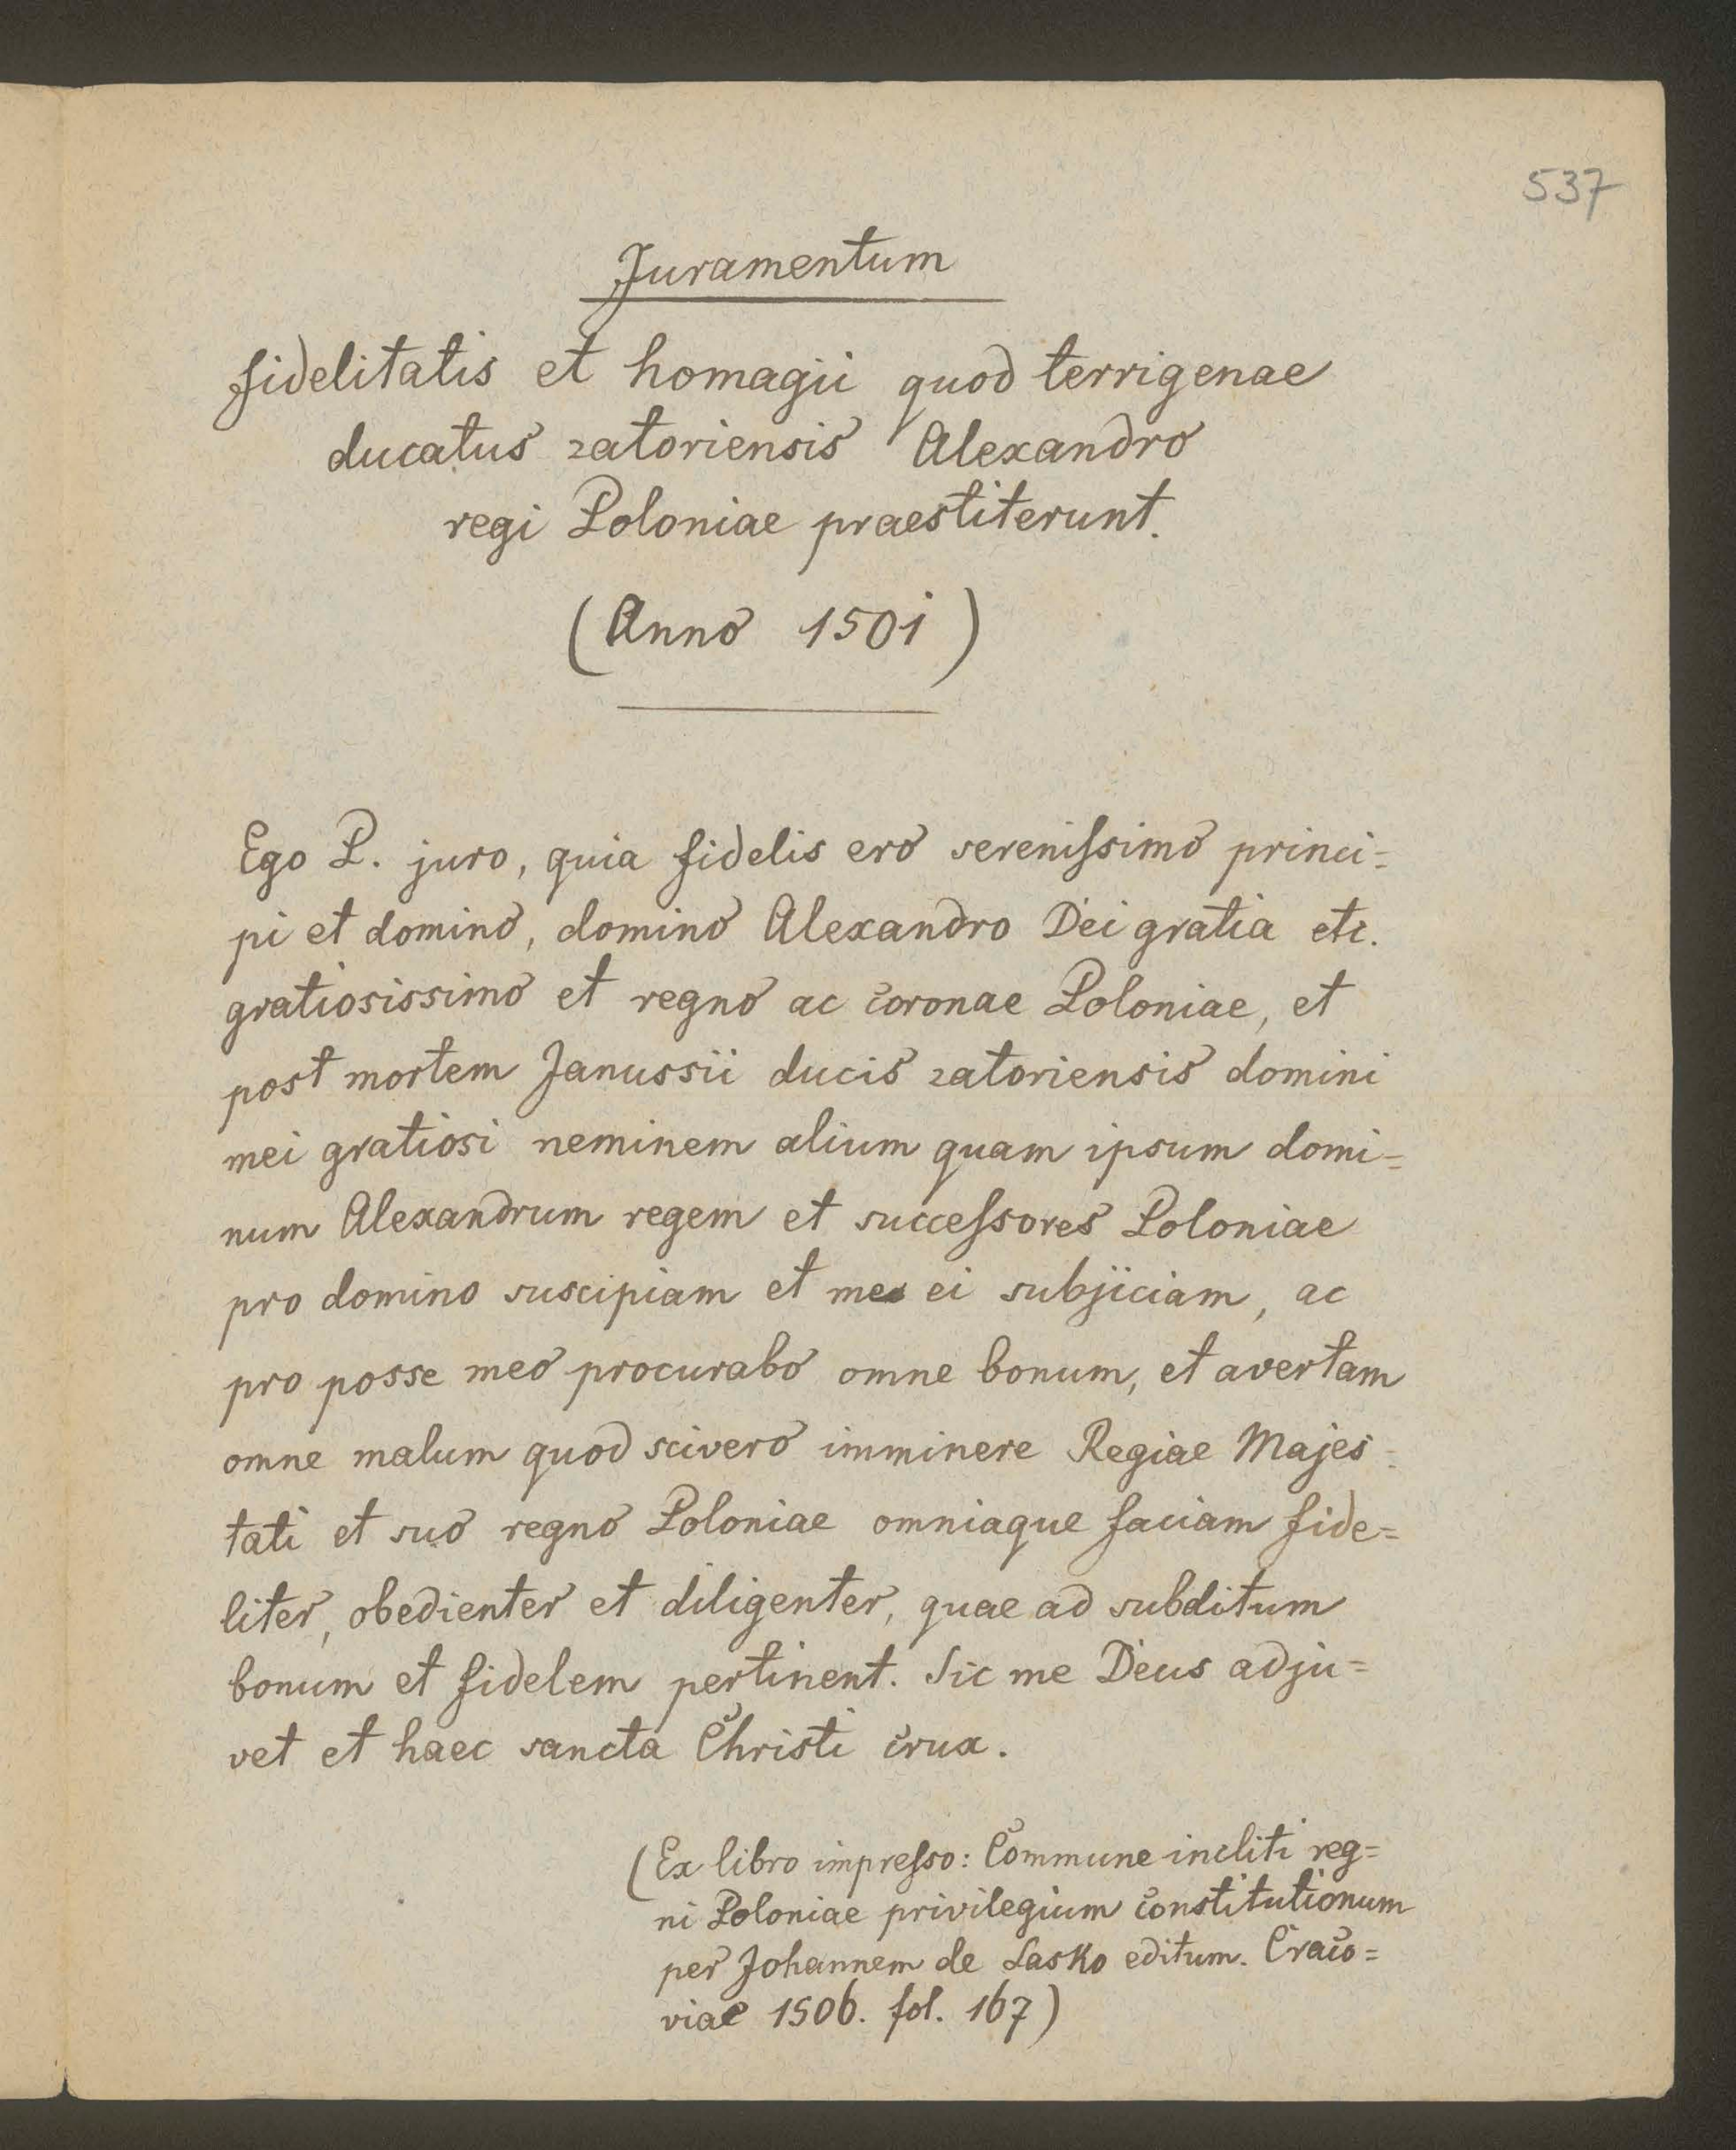 537
Juramentum
fidelitatis et homagii quod terrigenae
ducatus zatoriensis Alexandro
regi Poloniae praestiterunt.
(Anno 1501)
Ego P. juro, quia fidelis ero sereniſsimo princi=
pi et domino, domino Alexandro Dei gratia etc.
gratiosissimo et regno ac coronae Poloniae, et
post mortem Janussii ducis zatoriensis domini
mei gratiosi neminem alium quam ipsum domi=
num Alexandrum regem et succeſsores Poloniae
pro domino suscipiam et me ei subjiciam, ac
pro posse meo procurabo omne bonum, et avertam
omne malum quod scivero imminere Regiae Majes=
tati et suo regno Poloniae omniaque faciam fide=
liter, obedienter et diligenter, quae ad subditum
bonum et fidelem pertinent. Sic me Deus adju=
vet et haec sancta Christi crux.
(Ex libro impreſso: Commune incliti reg=
ni Poloniae privilegium constitutionum
per Johannem de Lasko editum. Craco=
viae 1506. fol. 167)